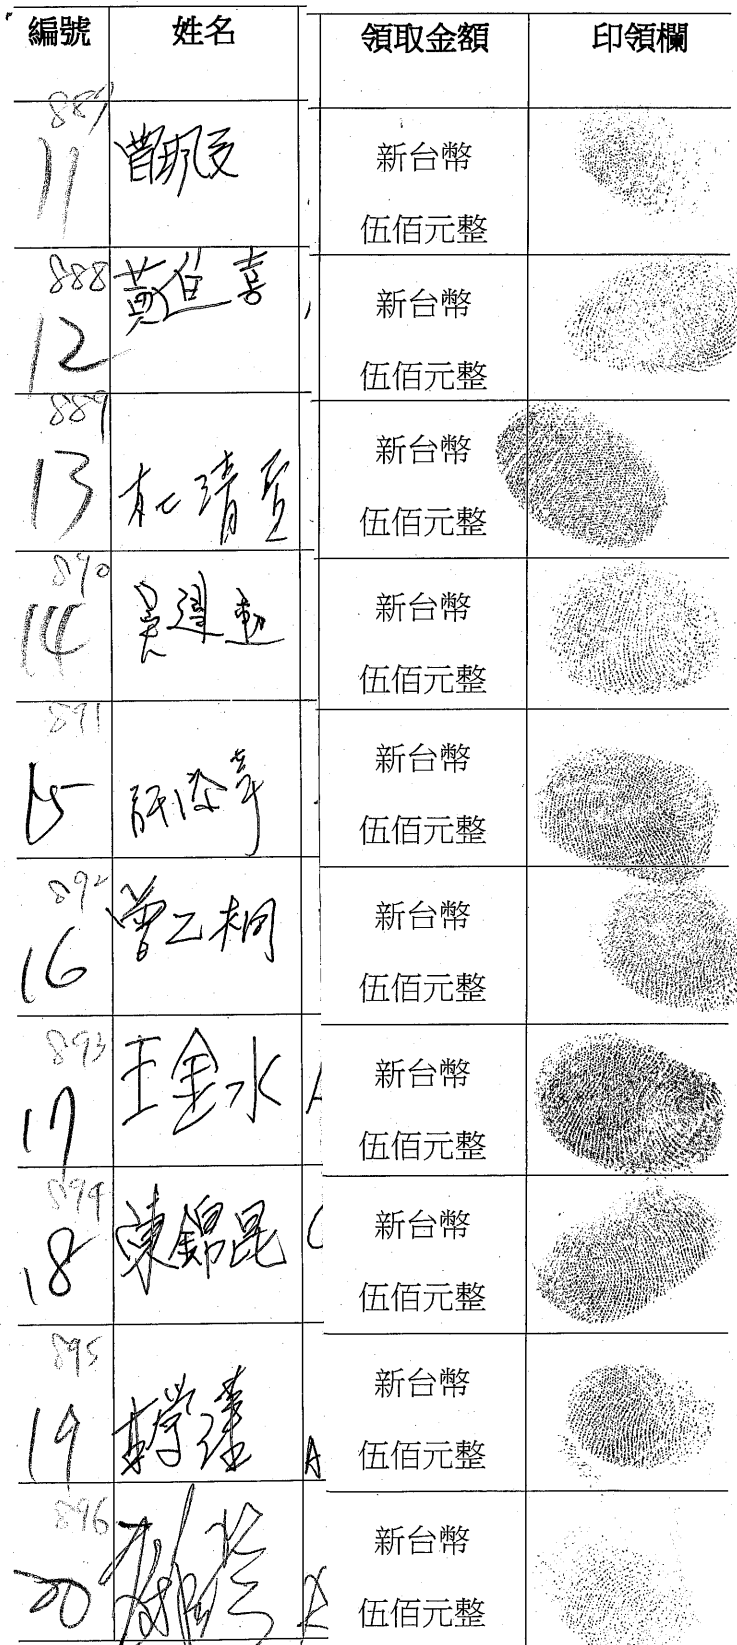 編號 姓名 領取金額 印領欄
887
11 曾珮雯 新台幣
伍佰元整
888
12 黃進喜 新台幣
伍佰元整
889
13 杜清 新台幣
伍佰元整
890
14 吳 新台幣
伍佰元整
891
15 許添幸 新台幣
伍佰元整
892
16 曾乙桐 新台幣
伍佰元整
893
17 王金水 新台幣
伍佰元整
894
18 陳錦昆 新台幣
伍佰元整
895
19 新台幣
伍佰元整
896
20 新台幣
伍佰元整